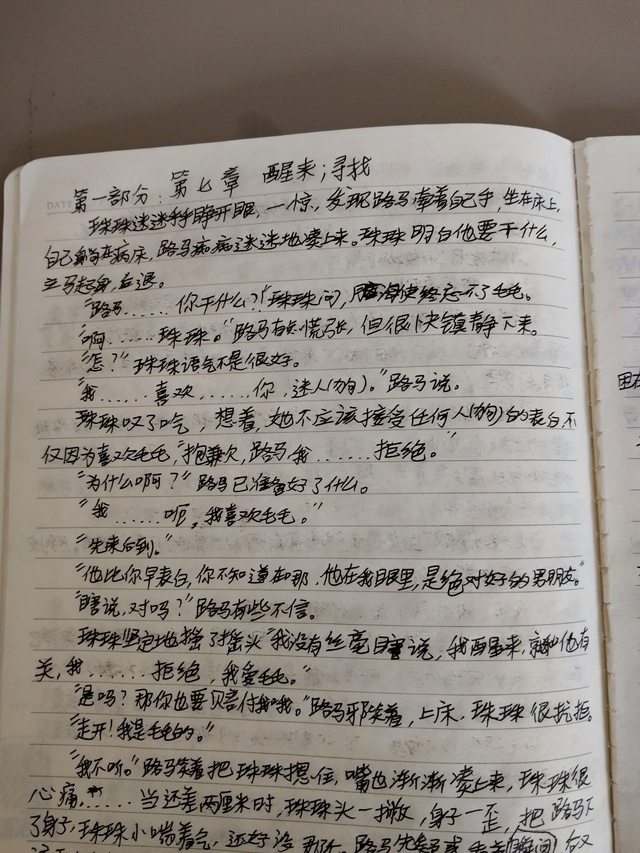 DATE
第一部分：第七章 醒来；寻找
珠珠迷迷乎乎睁开眼，一惊，发现路马牵着自己手，坐在床上，
自己躺在病床，路马痴痴迷迷地凑上来。珠珠明白他要干什么，
立马起身，后退。
“路马……你干什么？”珠珠问，脑海使终忘不了毛毛。
“啊……珠珠。”路马有点慌张，但很快镇静下来。
“怎？”珠珠语气不是很好。
“我……喜欢……你，迷人（狗）。”路马说。
珠珠叹了气，想着，她不应该接受任何人（狗）的表白，不
仅因为喜欢毛毛，“抱歉，路马，我……拒绝。”
“为什么啊？”路马已准备好了什么。
“我……呃，我喜欢毛毛。”
“先来后到。”
“他比你早表白，你不知道在那，他在我眼里，是绝对好的男朋友。”
“瞎说，对吗？”路马有些不信。
珠珠坚定地摇了摇头“我没有丝毫瞎说，我醒来，就和他有
关，我……拒绝，我爱毛毛。”
“是吗？那你也要赔付我哦。”路马邪笑着，上床，珠珠很抗拒。
“走开！我是毛毛的。”
“我不听。”路马笑着把珠珠摁住，嘴也渐渐凑上来，珠珠很
心痛，……当还差两厘米时，珠珠头一撇，身子一歪，把路马下
了身子，珠珠小喘着气，还好没